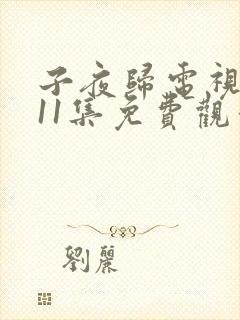 子夜歸電視
11集免費觀
劉麗